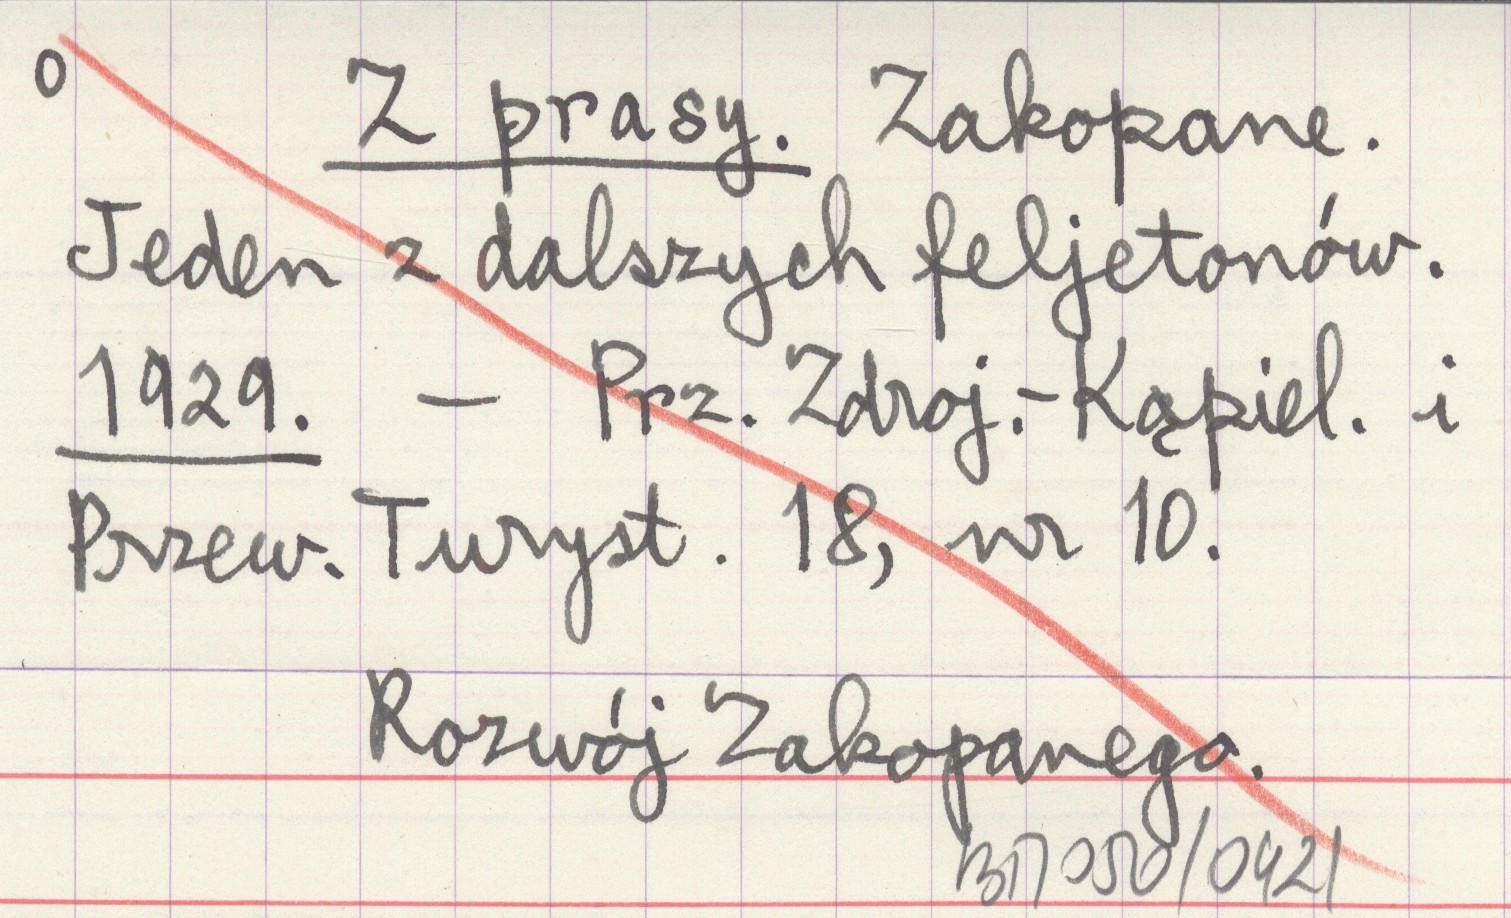 0 Z prasy. Zakopane.
Jeden z dalszych feljetonów.
1929. – Prz. Zdroj.-Kąpiel. i
Przew. Turyst. 18, nr 10.
Rozwój Zakopanego.
050/0421